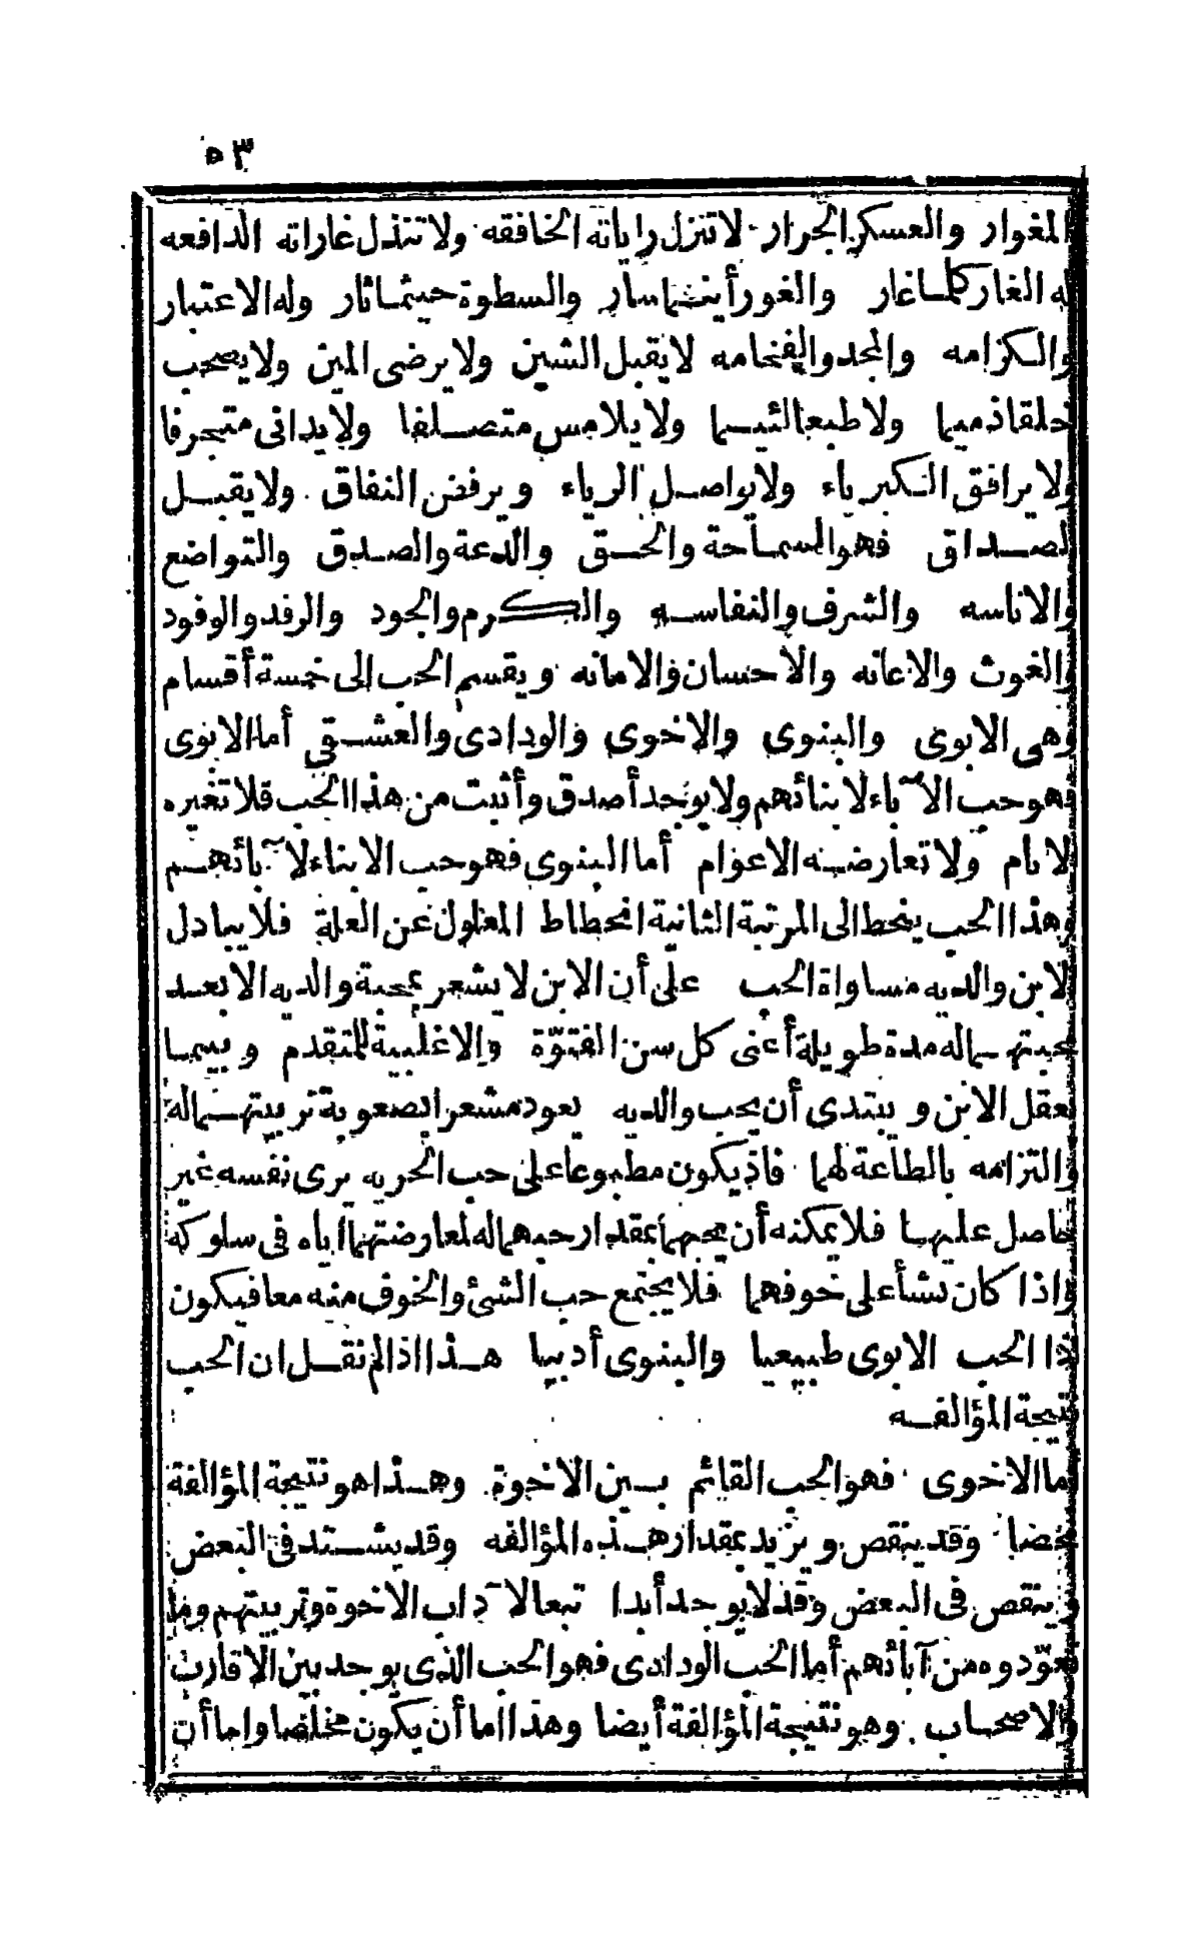 ٥٣
المغوار والعسكر الجرار. لاتنزل راياته الخافقه. ولاتنذل غاراته الدافعه
له الغار كلماغار والغور أينماسار والسطوة حيثماثار وله الاعتبار
والكرامه والمجد والفخامه لايقبل الشين ولايرضى المين ولايصحب
خلقاذميما ولاطبعالئيما ولايلامس متصلفا ولايدانى متجرفا
ولايرافق الكبرياء ولايواصل الرياء ويرفض النفاق. ولايقبل
الصداق فهوالسماحة والحق والدعة والصدق والتواضع
والاناسه والشرف والنفاسه والكرم والجود والرفد والوفود
والغوث والاعانه والاحسان والامانه ويقسم الحب الى خمسة أقسام
وهى الابوى والبنوى والاخوى والودادى والعشقى أماالابوى
فهوحب الآباء لابنائهم ولايوجد أصدق وأثبت من هذا الحب فلاتغيره
الايام ولاتعارضه الاعوام أماالبنوى فهوحب الابناء لآبائهم
وهذا الحب ينحط الى المرتبة الثانية انحطاط المعلول عن العلة فلايبادل
الابن والديه مساواة الحب على أن الابن لايشعر بمحبة والديه الابعد
محبتهماله مدة طويلة أعنى كل سن الفتوّة والاغلبية للمتقدم وبيما
يعقل الابن ويبتدى أن يحب والديه يعود مشعرابصعوبة تربيتهماله
والتزامه بالطاعة لهما فاذ يكون مطبوعاعلى حب الحريه يرى نفسه غير
حاصل عليها فلايمكنه أن يحبهمابمقدار حبهماله لمعارضتهمااياه فى سلوكه
واذا كان نشأعلى خوفهما فلايجتمع حب الشئ والخوف منه معافيكون
اذا الحب الابوى طبيعيا والبنوى أدبيا هذا اذالم نقل ان الحب
نتيجة المؤالفه
أماالاخوى فهوالحب القائم بين الاخوة. وهذاهو نتيجة المؤالفة
محضا وقدينقص ويزيدبمقدارهذه المؤالفه وقديشتد فى البعض
وينقص فى البعض وقدلايوجد أبدا تبعالآداب الاخوة وتربيتهم وما
تعوّدوه من آبائهم أماالحب الودادى فهوالحب الذى يوجد بين الاقارب
والاصحاب. وهونتيجة المؤالفة أيضا وهذا اماأن يكون مخلصاواماأن